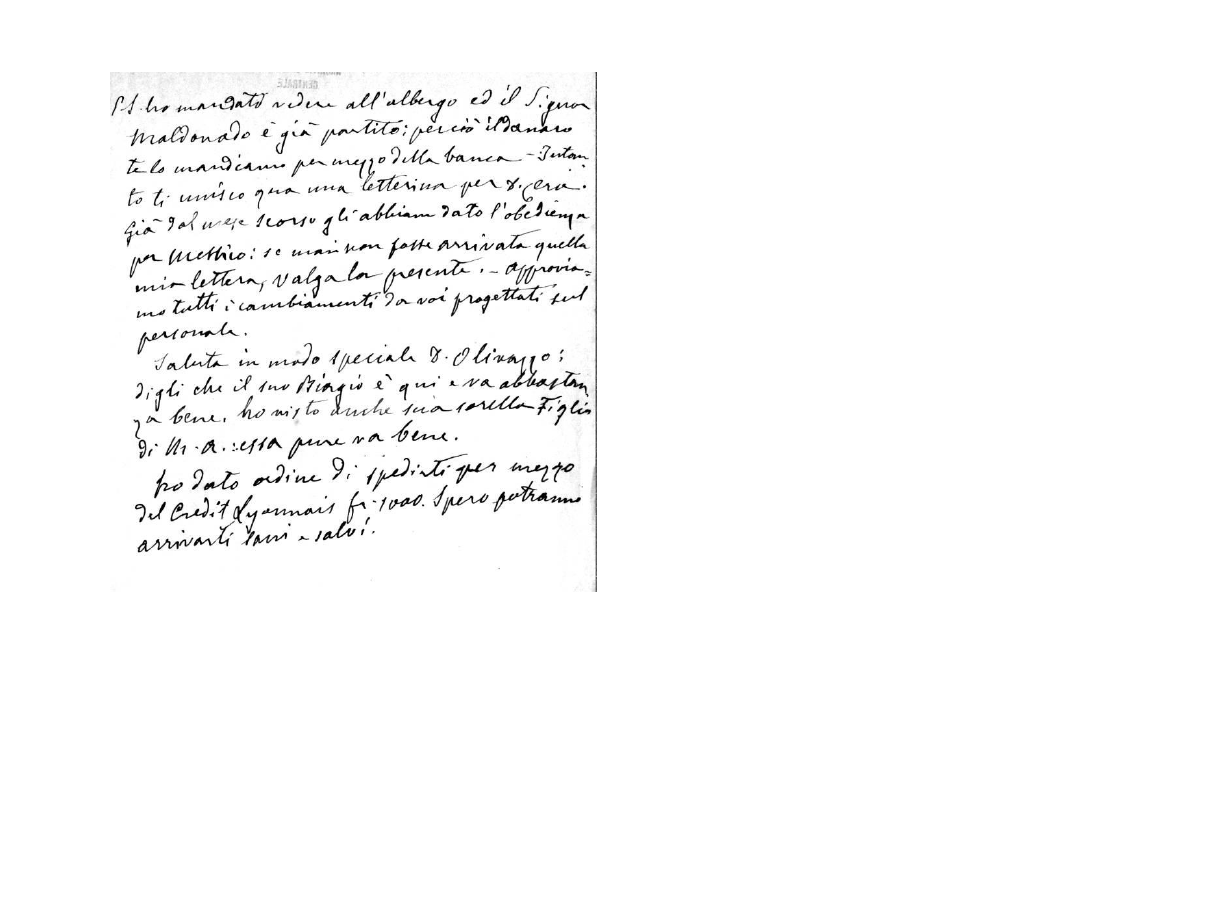 PS. ho mandato vedere all'albergo ed il Signor
Maldonado è già partito; perciò il danaro
te lo mandiamo per mezzo della banca - Intan
to ti unisco qua una letterina per D.
Già dal mese scorso gli abbiam dato l'obedienza
per Messico: se mai non fosse arrivata quella
mia lettera, valga la presente. - Approvia=
mo tutti i cambiamenti da voi progettati sul
personale.
Saluta in modo speciale D. Olivazzo:
digli che il suo Biagio è qui e va abbastan
za bene. ho visto anche sua sorella Figlia
di M. A.: essa pure va bene.
ho dato ordine di spedirti per mezzo
del Credit Lyonnais fr. 1000. Spero potranno
arrivarti sani e salvi.